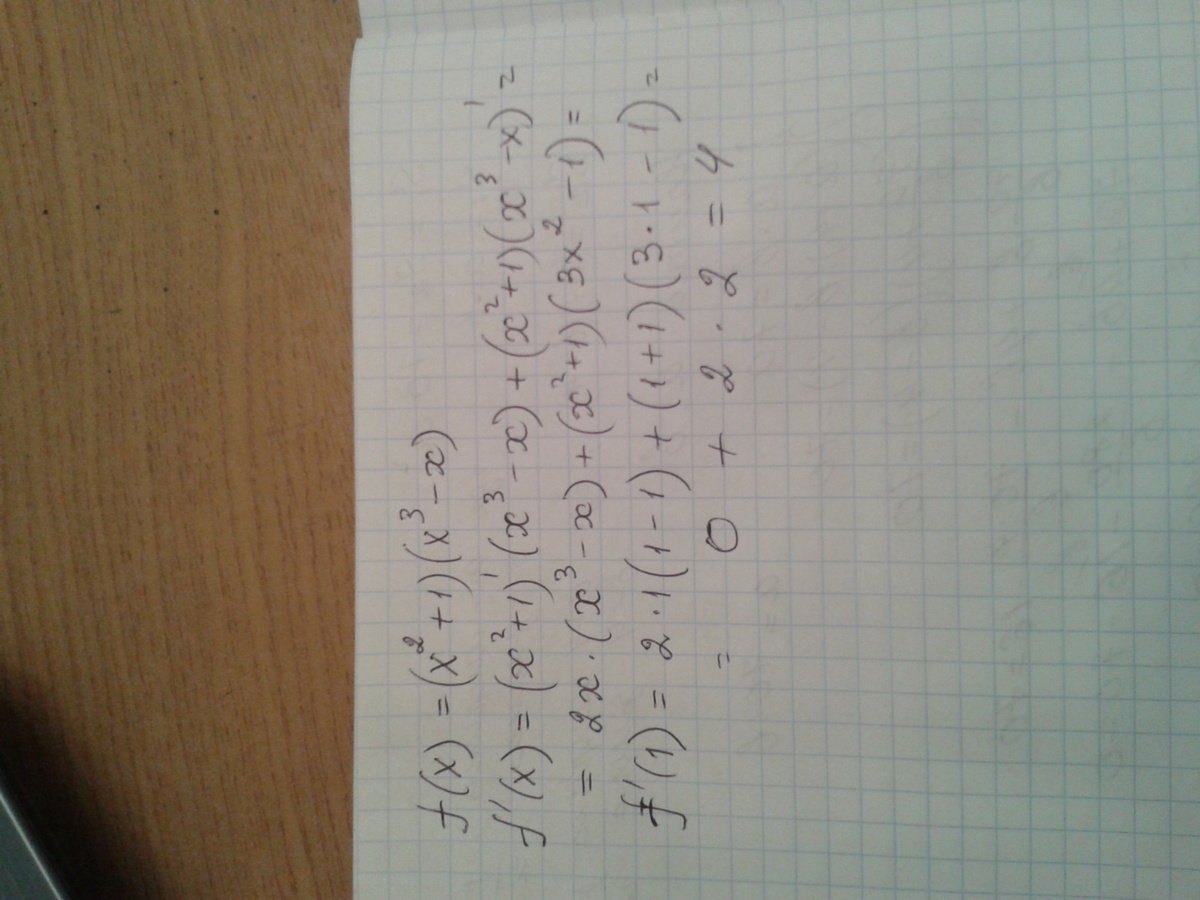 f(x) = (x² + 1)(x³ - x)
f'(x) = (x²+1)'(x³ - x) + (x²+1)(x³ - x)' =
= 2x · (x³ - x) + (x²+1)(3x² - 1) =
f'(1) = 2 · 1(1 - 1) + (1+1)(3 · 1 - 1) =
= 0 + 2 · 2 = 4